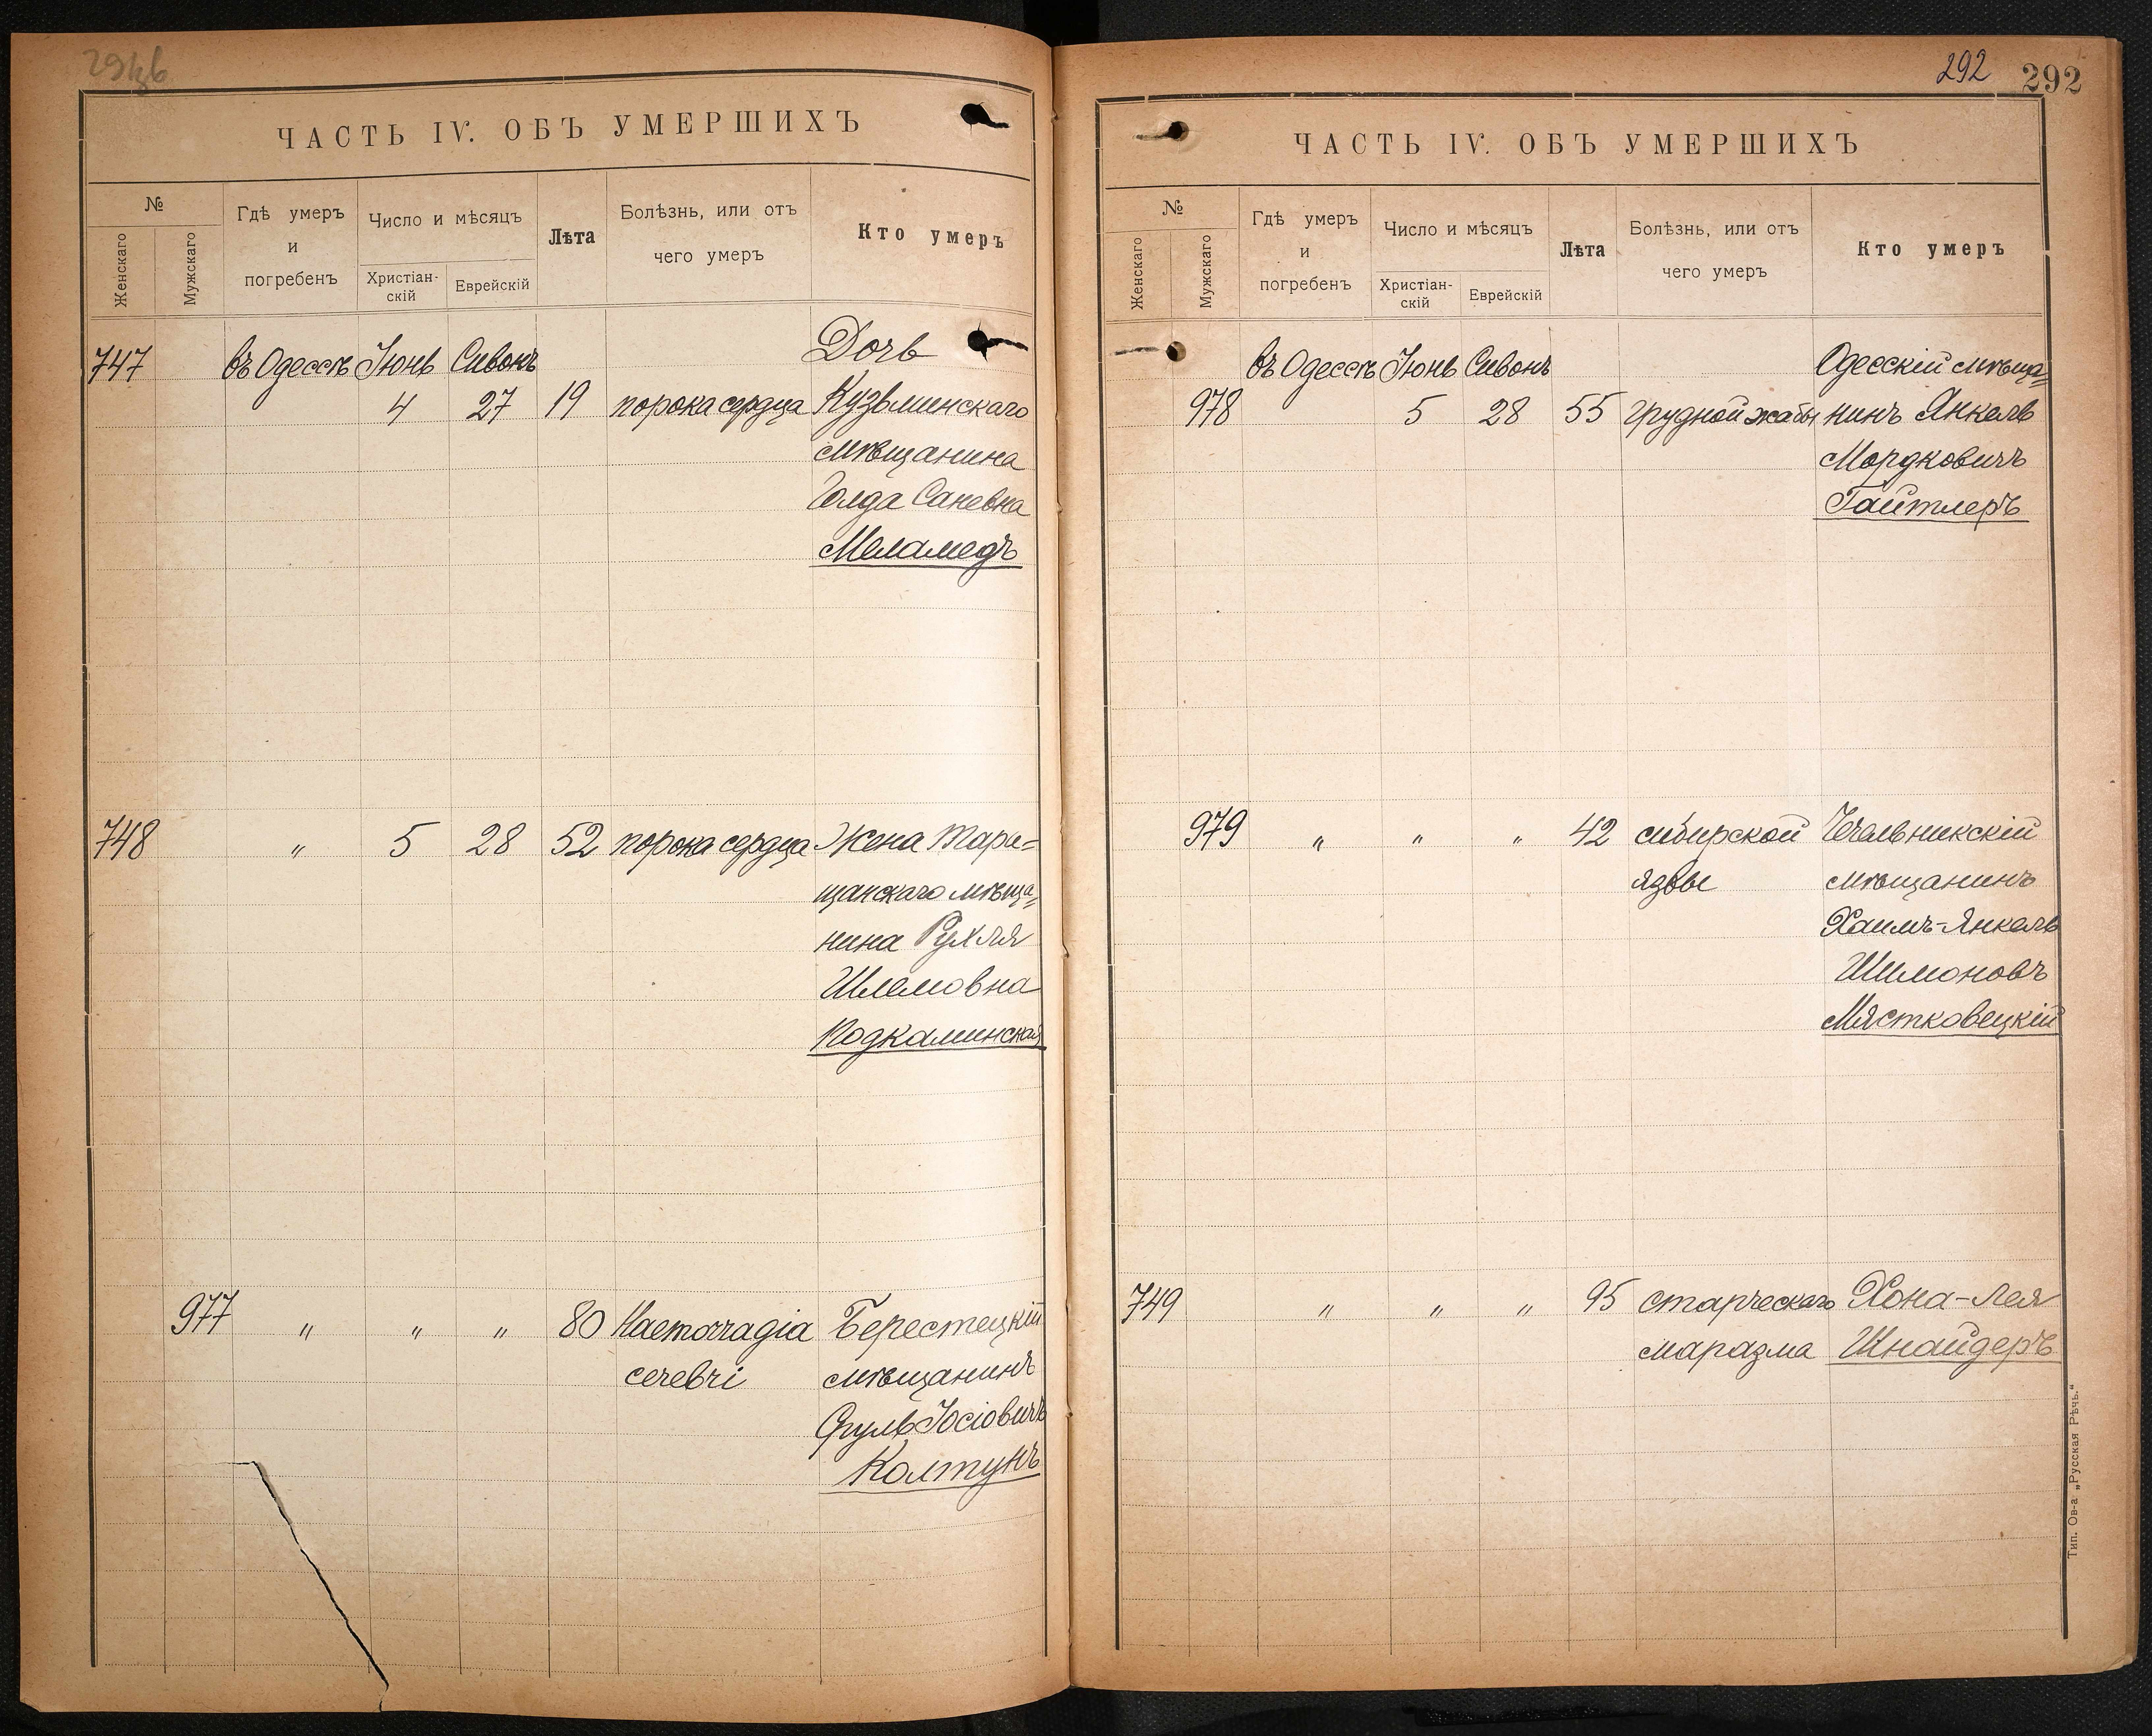 ЧАСТЬ IV. ОБЪ УМЕРШИХЪ
№
Женскаго
Мужскаго
Гдѣ умеръ
и
погребенъ
Число и мѣсяцъ
Христіан-
скій
Еврейскій
Лѣта
Болѣзнь, или отъ
чего умеръ
Кто умеръ
747 въ Одессѣ Іюнь Сивонъ Дочь
4 27 19 порока сердца Кузьминскаго
мѣщанина
Голда Саневна
Меламедъ
748 " 5 28 52 порока сердца Жена Тара=
щанскаго мѣща=
нина Рухля
Шлемовна
Подкаминская
977 " " " 80 Haemorragia Берестецкій
cerebri мѣщанинъ
Сруль Іосіовичъ
Колтунъ
292 292
ЧАСТЬ IV. ОБЪ УМЕРШИХЪ
№
Женскаго
Мужскаго
Гдѣ умеръ
и
погребенъ
Число и мѣсяцъ
Христіан-
скій
Еврейскій
Лѣта
Болѣзнь, или отъ
чего умеръ
Кто умеръ
въ Одессѣ Іюнь Сивонъ Одесскій мѣща=
978 5 28 55 грудной жабы нинъ Янкель
Мордковичъ
Гайтлеръ
979 " " " 42 сибирской Чечельникскій
язвы мѣщанинъ
Хаимъ-Янкель
Шимоновъ
Мястковецкій
749 " " " 95 старческаго Хона-Лея
маразма Шнайдеръ
Тип. Ов-а „Русская Рѣчь.“